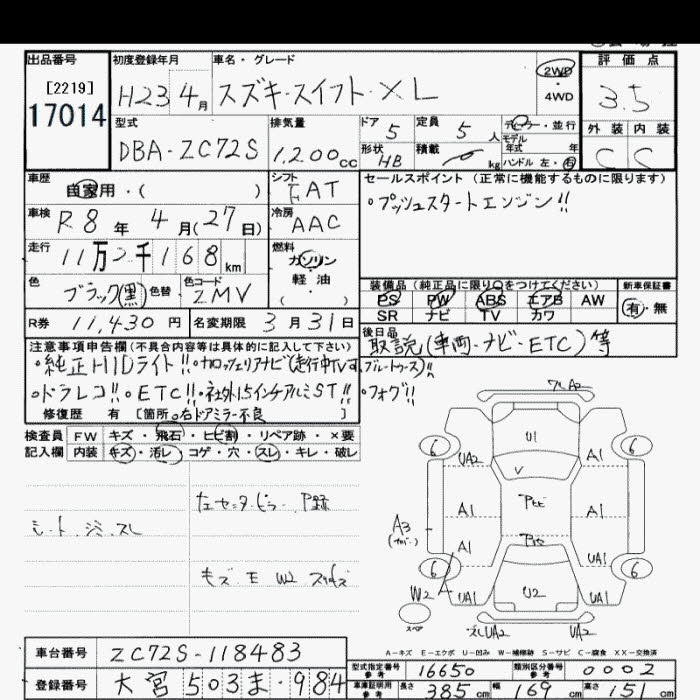 出品番号
[2219]
17014
初度登録年月
H23 4月
車名・グレード
スズキ・スイフト・XL
2WD
・
4WD
評価点
3.5
外装 内装
C C
型式
DBA-ZC72S
排気量
1,200cc
ドア 5
定員 5人
形状 HB
積載 kg
ディーラー・並行
モデル
年式 年
ハンドル 左・右
車歴
自家用・( )
シフト
FAT
車検
R8年 4月(27日)
冷房
AAC
走行
11万2千168km
燃料
ガソリン
軽油
( )
色
ブラック(黒) 色替
色コード
ZMV
セールスポイント(正常に機能するものに限ります)
・プッシュスタートエンジン!!
装備品(純正品に限り○をつけてください)
PS PW ABS エアB AW
SR ナビ TV カワ
新車保証書
有・無
R券 11,430円
名変期限 3月31日
後日品
取説(車両・ナビ・ETC)等
注意事項申告欄(不具合内容等は具体的に記入して下さい)
・純正HIDライト!!・カロッツェリアナビ(走行中TV可、ブルートゥース)!!
・ドラレコ!!・ETC!!・社外15インチアルミST!!・フォグ!!
修復歴 有 [箇所 ○右ドアミラー不良 ]
検査員 FW キズ・飛石・ヒビ割・リペア跡・×要
記入欄 内装 キズ・汚レ・コゲ・穴・スレ・キレ・破レ
シート、シミ、スレ
左センターピラー P録
キズ E W2
スレA2
U1
6 6
UA2 A1
V
A1 Pセ A1
A3
A1
6 6
W2
UA1 U2 UA1
UA1
スペア
スレUA2 UA2
A−キズ E−エクボ U−凹み W−補修跡 S−サビ C−腐食 XX−交換済
車台番号 ZC72S-118483
登録番号 大宮503ま・984
型式指定番号
参考
16650
類別区分番号
参考
0002
車庫証明用
参考
長さ 385cm 幅 169cm 高さ 151cm